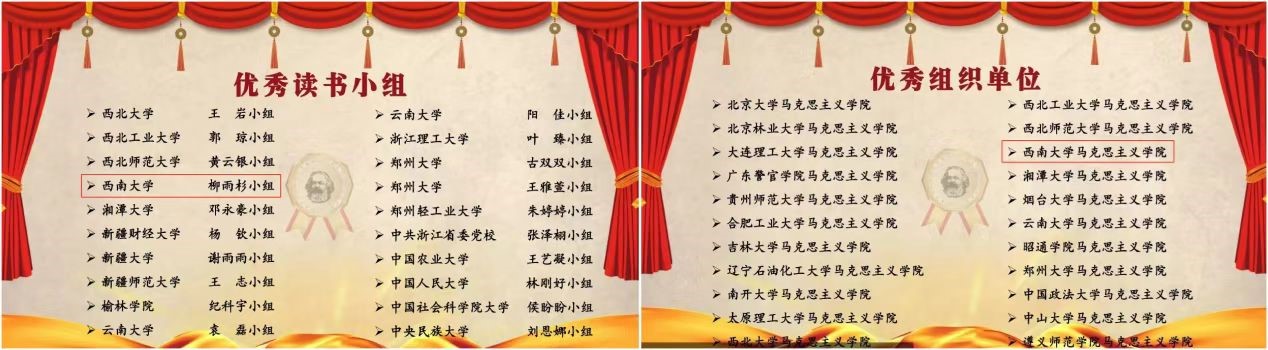 优秀读书小组
➢ 西北大学 王 岩小组
➢ 西北工业大学 郭 琼小组
➢ 西北师范大学 黄云银小组
➢ 西南大学 柳雨杉小组
➢ 湘潭大学 邓永豪小组
➢ 新疆财经大学 杨 钦小组
➢ 新疆大学 谢雨雨小组
➢ 新疆师范大学 王 志小组
➢ 榆林学院 纪科宇小组
➢ 云南大学 袁 磊小组
➢ 云南大学 阳 佳小组
➢ 浙江理工大学 叶 臻小组
➢ 郑州大学 古双双小组
➢ 郑州大学 王雅萱小组
➢ 郑州轻工业大学 朱婷婷小组
➢ 中共浙江省委党校 张泽栩小组
➢ 中国农业大学 王艺凝小组
➢ 中国人民大学 林刚好小组
➢ 中国社会科学院大学 侯盼盼小组
➢ 中央民族大学 刘思娜小组
优秀组织单位
➢ 北京大学马克思主义学院
➢ 北京林业大学马克思主义学院
➢ 大连理工大学马克思主义学院
➢ 广东警官学院马克思主义学院
➢ 贵州师范大学马克思主义学院
➢ 合肥工业大学马克思主义学院
➢ 吉林大学马克思主义学院
➢ 辽宁石油化工大学马克思主义学院
➢ 南开大学马克思主义学院
➢ 太原理工大学马克思主义学院
➢ 西北大学马克思主义学院
➢ 西北工业大学马克思主义学院
➢ 西北师范大学马克思主义学院
➢ 西南大学马克思主义学院
➢ 湘潭大学马克思主义学院
➢ 烟台大学马克思主义学院
➢ 云南大学马克思主义学院
➢ 昭通学院马克思主义学院
➢ 郑州大学马克思主义学院
➢ 中国政法大学马克思主义学院
➢ 中山大学马克思主义学院
➢ 遵义师范学院马克思主义学院